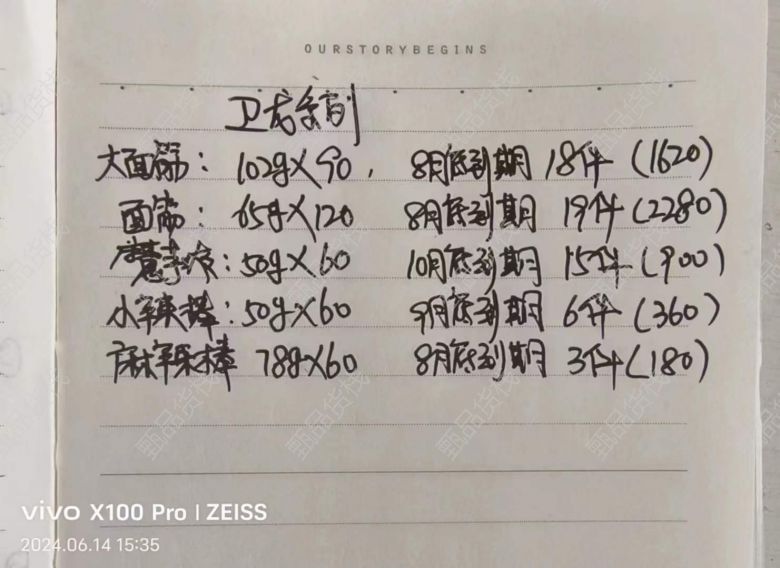 OURSTORYBEGINS
卫龙系列
大面筋：102g×90，8月底到期 18件（1620）
面筋：65g×120 8月底到期 19件（2280）
：50g×60 10月底到期 15件（900）
小辣棒：50g×60 9月底到期 6件（360）
麻辣棒 78g×60 8月底到期 3件（180）
vivo X100 Pro | ZEISS
2024.06.14 15:35
甄品货栈